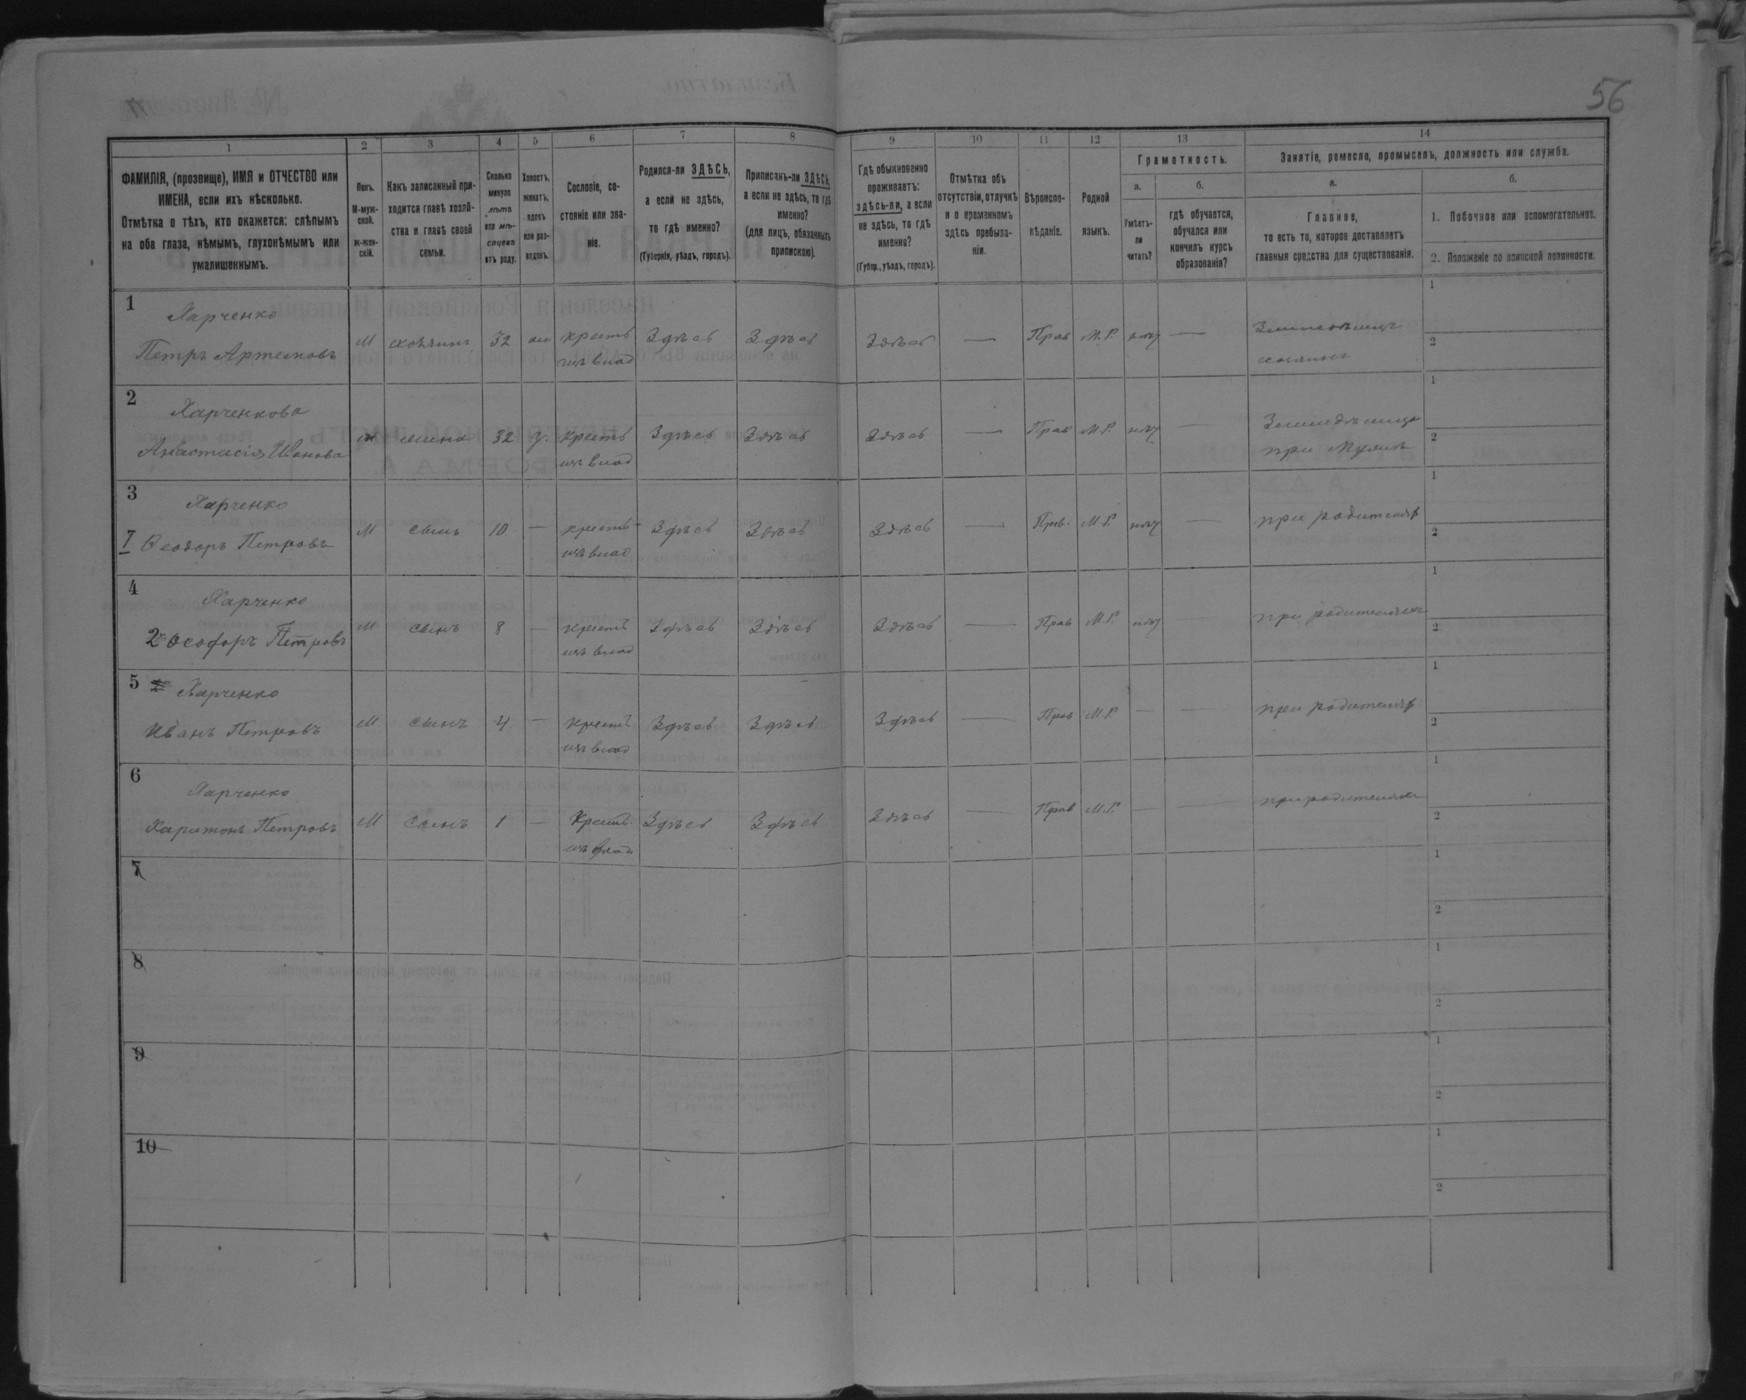 56
1 2 3 4 5 6 7 8 9 10 11 12 13 14
ФАМИЛІЯ, (прозвище), ИМЯ и ОТЧЕСТВО или
ИМЕНА, если ихъ нѣсколько.
Отмѣтка о тѣхъ, кто окажется: слѣпымъ
на оба глаза, нѣмымъ, глухонѣмымъ или
умалишеннымъ.
Полъ.
М-муж-
ской.
Ж-жен-
скій.
Какъ записанный при-
ходится главѣ хозяй-
ства и главѣ своей
семьи.
Сколько
минуло
лѣтъ
или мѣ-
сяцевъ
отъ роду.
Холостъ,
женатъ,
вдовъ
или раз-
веденъ.
Сословіе, со-
стояніе или зва-
ніе.
Родился-ли ЗДѢСЬ,
а если не здѣсь,
то гдѣ именно?
(Губернія, уѣздъ, городъ).
Приписанъ-ли ЗДѢСЬ,
а если не здѣсь, то гдѣ
именно?
(для лицъ, обязанныхъ
припискою).
Гдѣ обыкновенно
проживаетъ:
здѣсь-ли, а если
не здѣсь, то гдѣ
именно?
(Губер., уѣздъ, городъ).
Отмѣтка объ
отсутствіи, отлучкѣ
и о временномъ
здѣсь пребыва-
ніи.
Вѣроиспо-
вѣданіе.
Родной
языкъ.
Грамотность.
а.
Умѣетъ-
ли
читать?
б.
гдѣ обучается,
обучался или
кончилъ курсъ
образованія?
Занятіе, ремесло, промыселъ, должность или служба.
а.
Главное,
то есть то, которое доставляетъ
главныя средства для существованія.
б.
1. Побочное или вспомогательное.
2. Положеніе по воинской повинности.
1 Харченко
Петръ Артемовъ М хозяинъ 32 крестъ Здѣсь Здѣсь Здѣсь — Прав М.Р. нѣт —
изъ влад хозяинъ
2 Харченкова
Анастасія Иванова ж жена 32 з. крестъ Здѣсь Здѣсь Здѣсь — Прав М.Р. нѣт —
изъ влад при мужѣ
3 Харченко
1 Ѳеодоръ Петровъ М сынъ 10 — крестъ Здѣсь Здѣсь Здѣсь — Прав. М.Р. нѣт — при родителях
изъ влад
4 Харченко
2 Ѳеофоръ Петровъ М сынъ 8 — крестъ Здѣсь Здѣсь Здѣсь — Прав М.Р. нѣт — при родителях
изъ влад
5 Харченко
Иванъ Петровъ М сынъ 4 — крестъ Здѣсь Здѣсь Здѣсь — Прав М.Р. — — при родителях
изъ влад
6 Харченко
Харитонъ Петровъ М сынъ 1 — Крестъ Здѣсь Здѣсь Здѣсь — Прав М.Р. — — при родителях
изъ влад
7
8
9
10